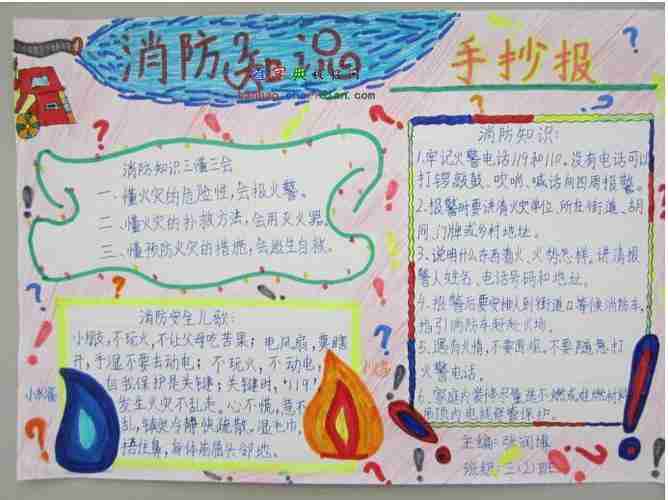 消防知识
手抄报
kanbao.chazidian.com
消防知识三懂三会
一、懂火灾的危险性,会报火警。
二、懂火灾的扑救方法,会用灭火器。
三、懂预防火灾的措施,会逃生自救。
消防安全儿歌:
小朋友,不玩火,不让父母吃苦果;电风扇,要瞎
开,手湿不要去动电;不玩火,不动电,
自我保护是关键;关键时,“119”
发生火灾不乱走。心不慌,意不
乱,镇安冷静快疏散,湿毛巾,
捂住鼻,身体前屈头邻地。
小水滴
小火苗
消防知识:
1.牢记火警电话119和110。没有电话可以
打锣敲鼓、吹哨、喊话向四周报警。
2.报警时要讲清火灾单位、所在街道、胡
同、门牌或乡村地址。
3、说明什么东西着火、火势怎样。讲清报
警人姓名、电话号码和地址。
4.报警后要安排人到街道口等候消防车,
指引消防车赶赴火场。
5.遇有火情,不要围观。不要随意打
火警电话。
6.家庭夫装修尽量选不燃或难燃材料
吊顶内电线保护。
主编:张润
班级:三(2)班